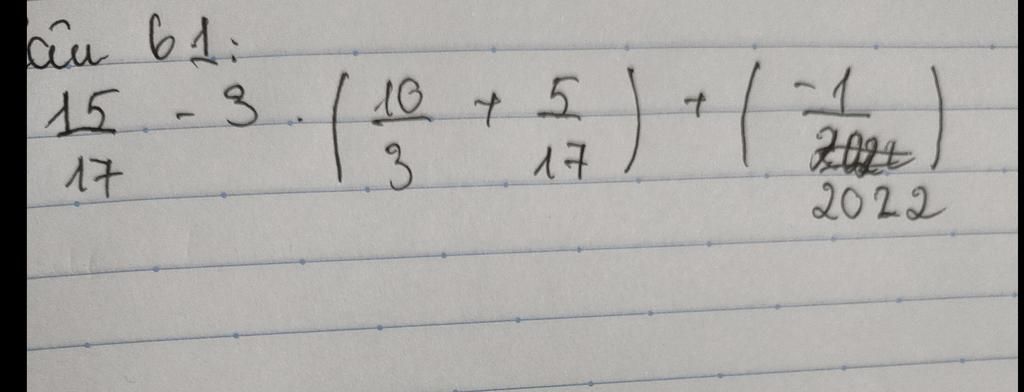 Câu 61:
15/17 - 3 . (10/3 + 5/17) + (-1/2022)